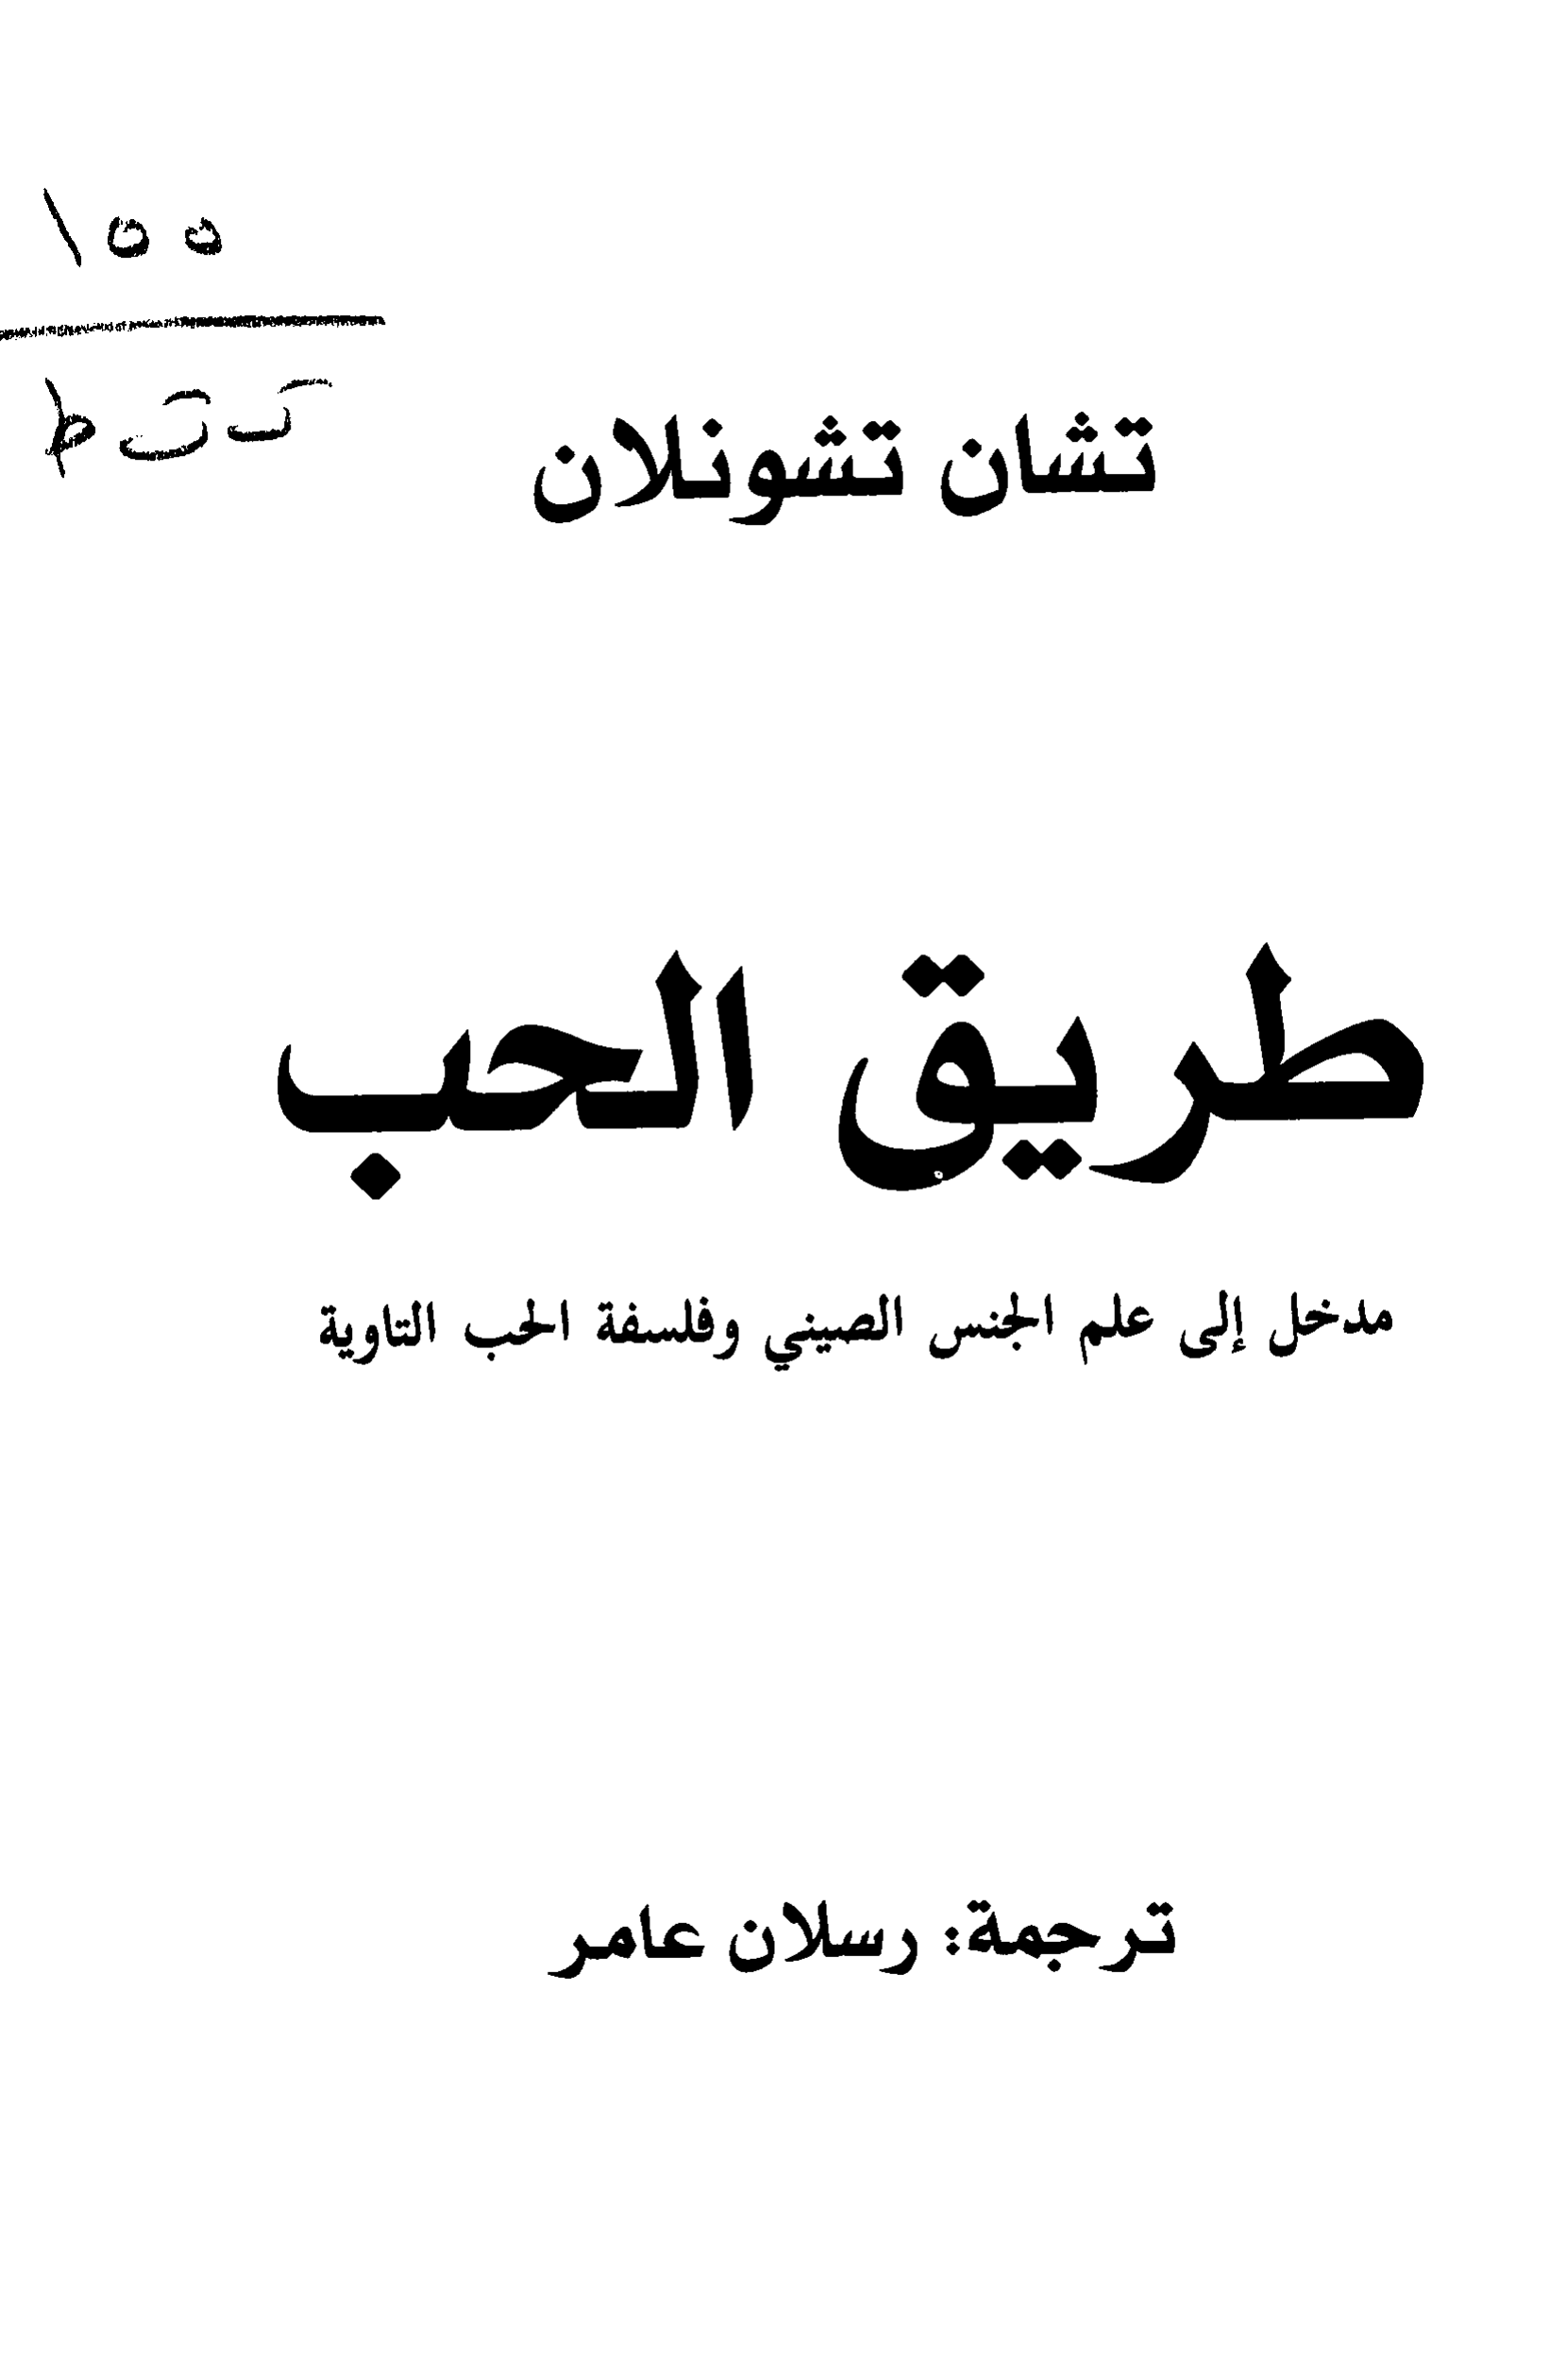 ١٥٥
تشان تشونلان
طريق الحب
مدخل إلى علم الجنس الصيني وفلسفة الحب التاوية
ترجمة: رسلان عامر